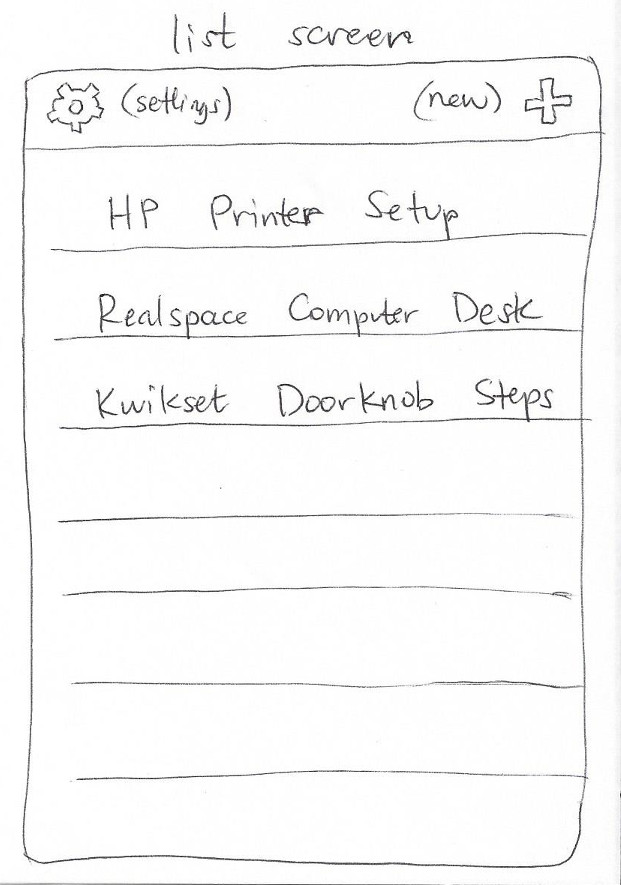 list screen
(settings) (new)
HP Printer Setup
Realspace Computer Desk
Kwikset Doorknob Steps